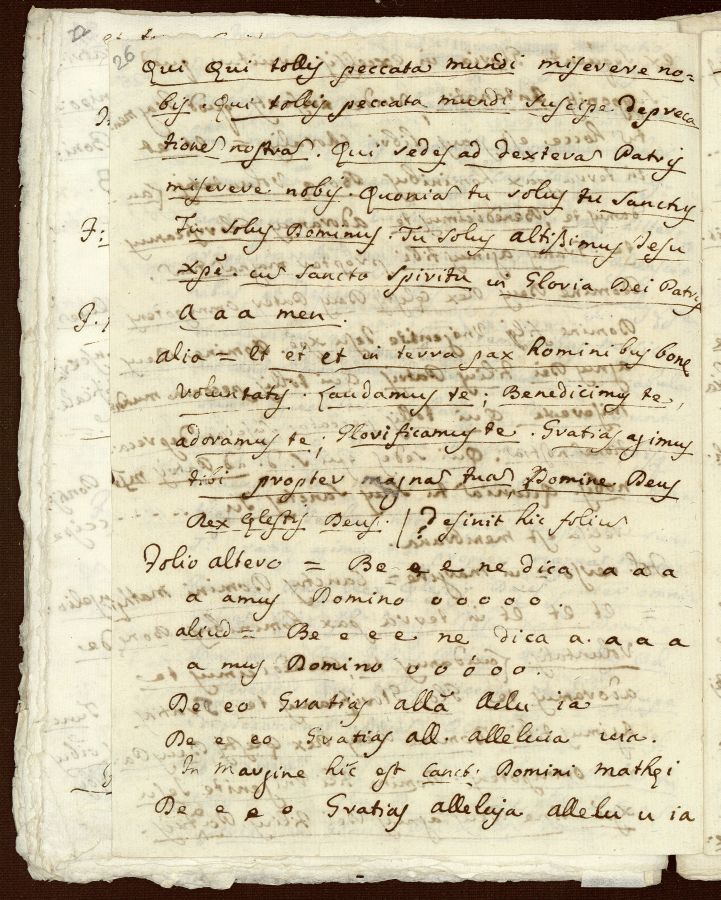 22
26
Qui Qui tollis peccata mundi miserere no=
bis. Qui tollis peccata mundi suscipe depreca
tionē nostrā. Qui sedes ad dexterā Patris
miserere nobis. Quoniā tu solus tu sanctus
Tu solus Dominus. Tu solus altissimus Jesu
xp̄e. cū sancto spiritu in Gloria Dei Patris
a a a men.
alia = Et et et in terra pax hominibus bone
voluntatis. Laudamus te; Benedicimus te,
adoramus te; Glorificamus te. Gratias agimus
tibi propter magnā tuā Domine Deus
Rex Celestis Deus. / Desinit hic foliū
Folio altero = Be e e ne dica a a a
a amus Domino o o o o o
aliud = Be e e e ne dica a. a a a
a mus Domino o o o o o.
De eo Gratias allā allu ia
De e eo Gratias all. alleluia uia.
In margine hic est Canct: Domini mathei
De e e o Gratias alleluja allelu u ia